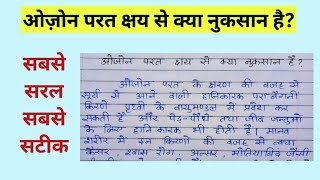 ओज़ोन परत क्षय से क्या नुकसान है?
सबसे
सरल
सबसे
सटीक
ओजोन परत क्षय से क्या नुकसान है ?
ओजोन परत के क्षरण की वजह से
सूर्य से आने वाली हानिकारक पराबैंगनी
किरणें पृथ्वी के वायुमण्डल में प्रवेश कर
सकती हैं और पेड़-पौधे तथा जीव जन्तुओं
के लिए हानिकारक भी होती हैं। मानव
शरीर में इन किरणों की वजह से त्वचा
कैंसर, श्वास रोग, अल्सर, मोतियाबिंद जैसी